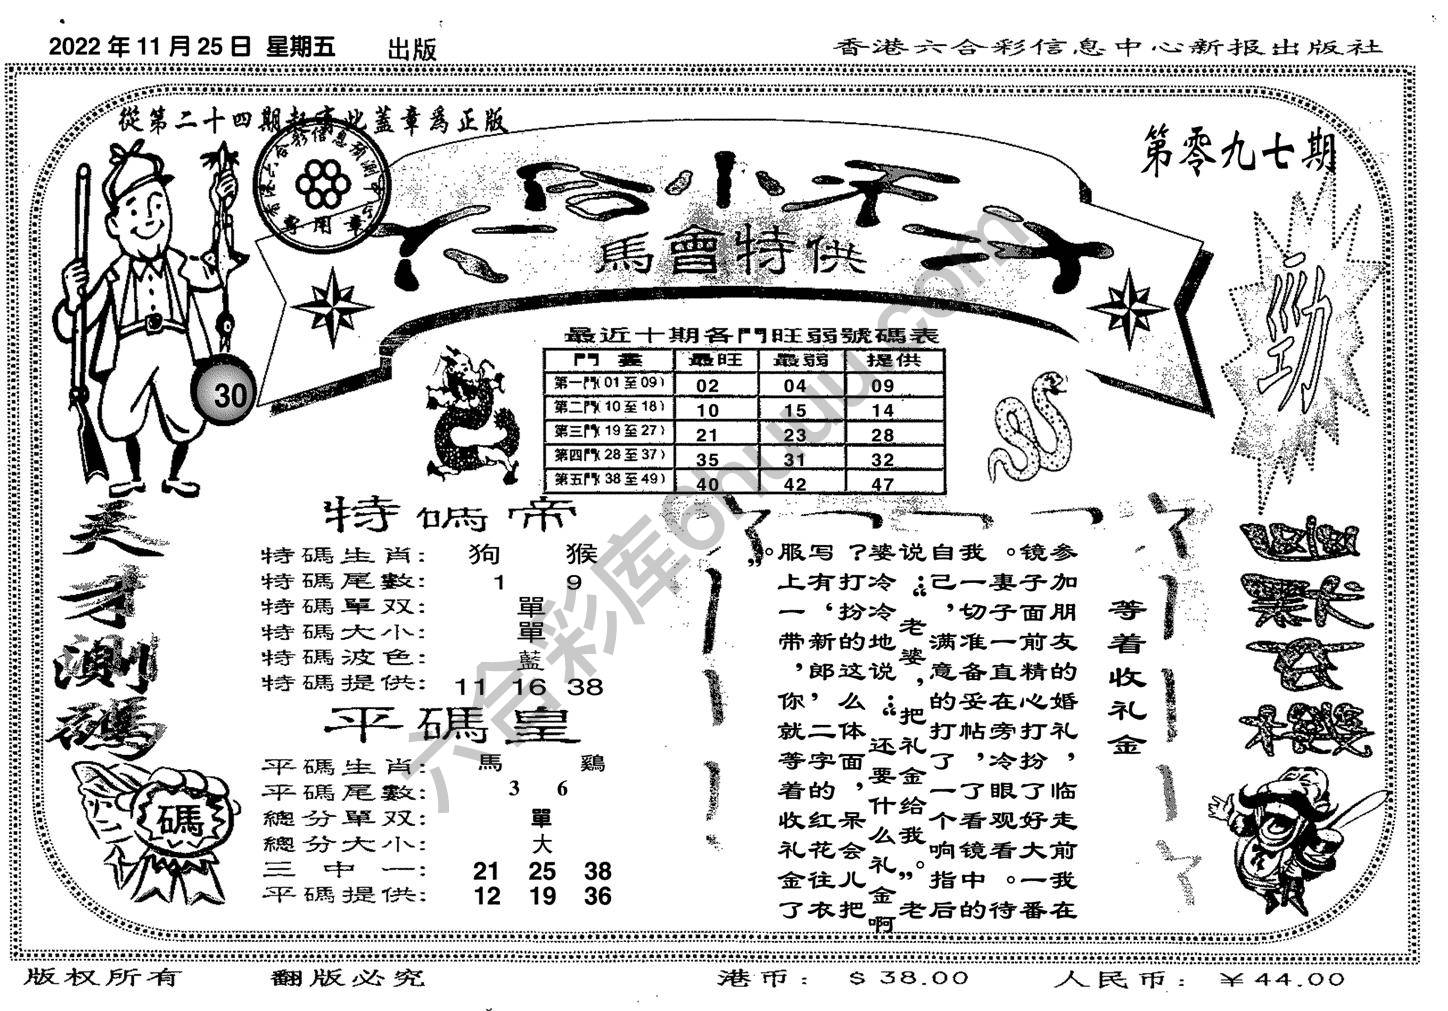 2022年11月25日 星期五 出版
香港六合彩信息中心新报出版社
從第二十四期起有此蓋章爲正版
第零九七期
專用章
馬會特供
勁
30
最近十期各門旺弱號碼表
門 最旺 最弱 提供
第一門(01至09) 02 04 09
第二門(10至18) 10 15 14
第三門(19至27) 21 23 28
第四門(28至37) 35 31 32
第五門(38至49) 40 42 47
天才測碼
碼
特碼帝
特碼生肖: 狗 猴
特碼尾數: 1 9
特碼單双: 單
特碼大小: 單
特碼波色: 藍
特碼提供: 11 16 38
平碼皇
平碼生肖: 馬 鷄
平碼尾數: 3 6
總分單双: 單
總分大小: 大
三中一: 21 25 38
平碼提供: 12 19 36
等着收礼金
参加朋友的婚礼，临走前我在
镜子面前精心打扮了好大一番
。妻子一直在旁冷眼观看。待
我一切准备妥帖，了看镜中的
自己，满意的打了一个响指后
说：“老婆，把礼金给我。”老
婆冷冷地说：“还要什么礼金啊
？打扮的这么体面，呆会儿把
写有‘新郎’二字的红花往衣
服上一带，你就等着收礼金了
。”
六合彩库6huuu.com
版权所有 翻版必究 港币: $38.00 人民币: ¥44.00